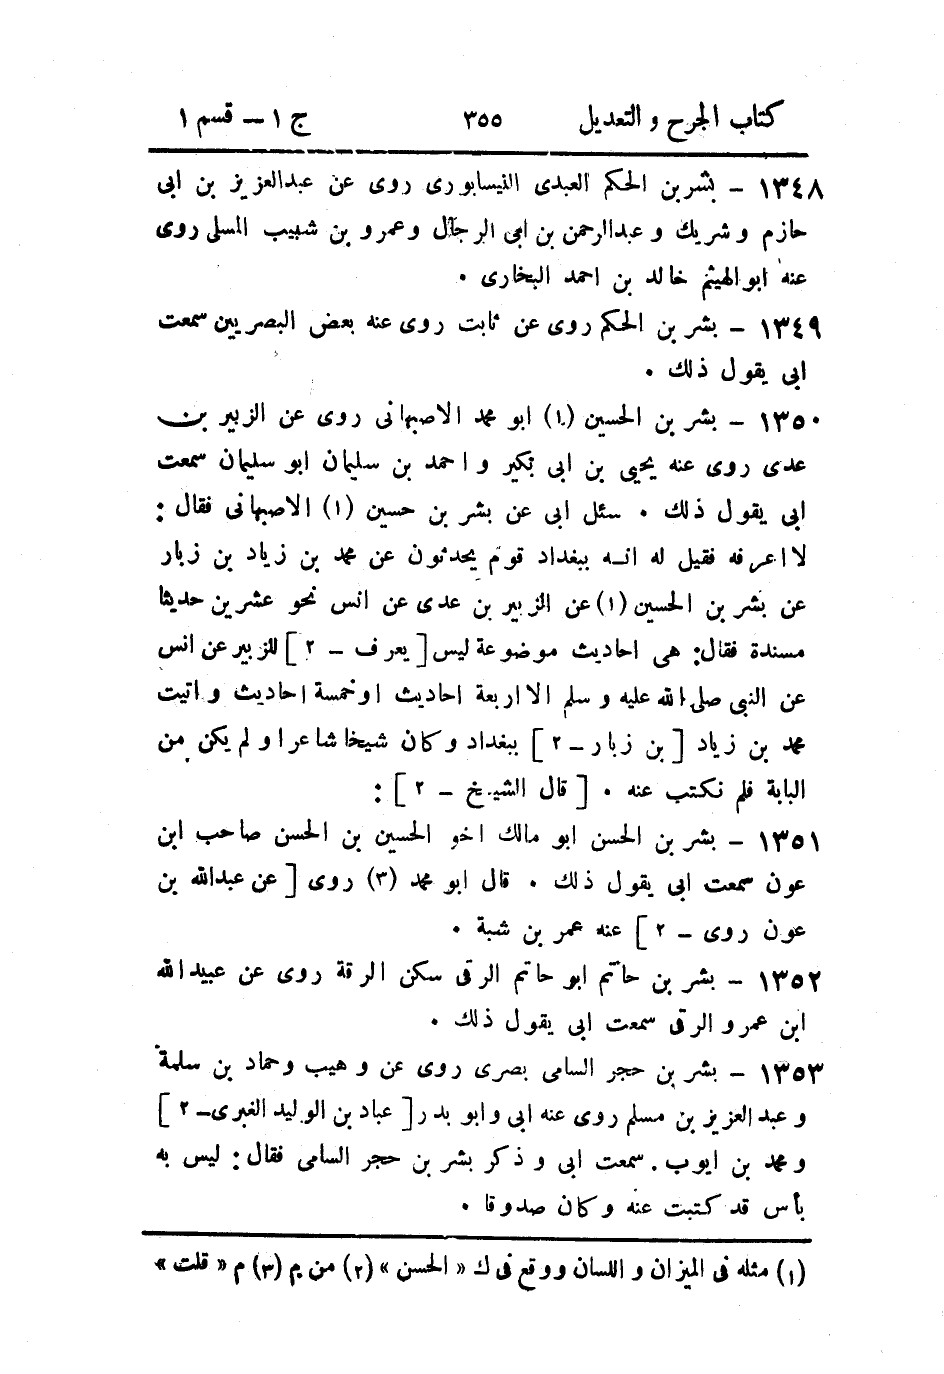 كتاب الجرح و التعديل ٣٥٥ ج ١ – قسم ١
١٣٤٨ – بشر بن الحكم العبدى النيسابورى روى عن عبدالعزيز بن ابى
حازم و شريك و عبدالرحمن بن ابى الرجال وعمرو بن شبيب المسلى روى
عنه ابو الهيثم خالد بن احمد البخارى .
١٣٤٩ – بشر بن الحكم روى عن ثابت روى عنه بعض البصريين سمعت
ابى يقول ذلك .
١٣٥٠ – بشر بن الحسين (١) ابو محمد الاصبهانى روى عن الزبير بن
عدى روى عنه يحيى بن ابى بكير و احمد بن سليمان ابو سليمان سمعت
ابى يقول ذلك . سئل ابى عن بشر بن حسين (١) الاصبهانى فقال :
لا اعرفه فقيل له انه ببغداد قوم يحدثون عن محمد بن زياد بن زبار
عن بشر بن الحسين (١) عن الزبير بن عدى عن انس نحو عشرين حديثا
مسندة فقال: هى احاديث موضوعة ليس [ يعرف – ٢ ] للزبير عن انس
عن النبى صلى الله عليه و سلم الا اربعة احاديث او خمسة احاديث و اتيت
محمد بن زياد [ بن زبار – ٢ ] ببغداد وكان شيخا شاعرا و لم يكن من
البابة فلم نكتب عنه . [ قال الشيخ – ٢ ] :
١٣٥١ – بشر بن الحسن ابو مالك اخو الحسين بن الحسن صاحب ابن
عون سمعت ابى يقول ذلك . قال ابو محمد (٣) روى [ عن عبدالله بن
عون روى – ٢ ] عنه عمر بن شبة .
١٣٥٢ – بشر بن حاتم ابو حاتم الرقى سكن الرقة روى عن عبيدالله
ابن عمرو الرقى سمعت ابى يقول ذلك .
١٣٥٣ – بشر بن حجر السامى بصرى روى عن و هيب وحماد بن سلمة
و عبد العزيز بن مسلم روى عنه ابى وابو بدر [ عباد بن الوليد الغبرى – ٢ ]
و محمد بن ايوب . سمعت ابى و ذكر بشر بن حجر السامى فقال : ليس به
بأس قد كتبت عنه وكان صدوقا .
(١) مثله فى الميزان و اللسان ووقع فى ك « الحسن » (٢) من م (٣) م « قلت »